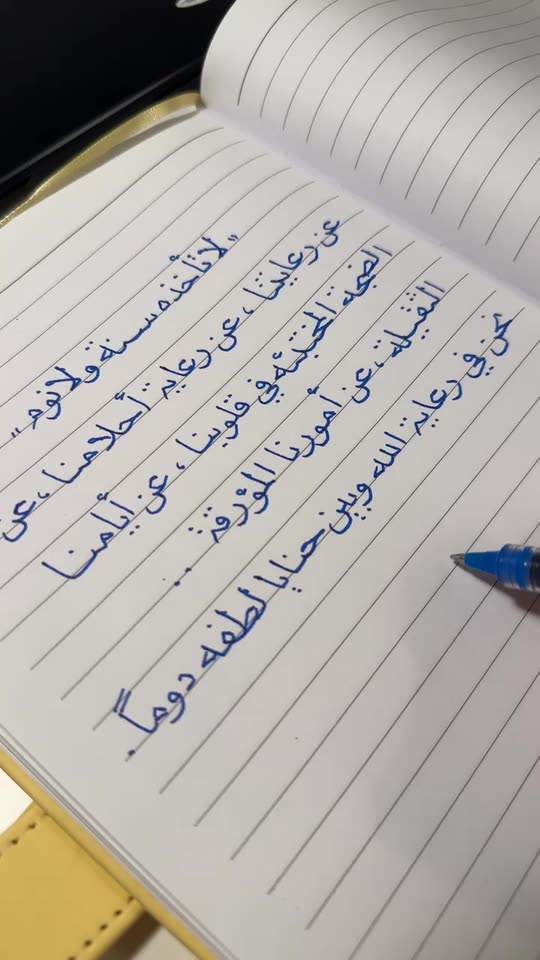 "لا تأخذه سنة ولا نوم"
عن رعايتنا، عن رعاية أحلامنا، عن
الضجة المختبئة في قلوبنا، عن أيامنا
الثقيلة، عن أمورنا المؤرقة ..
نحن في رعاية الله وبين حنايا لطفه دوماً.